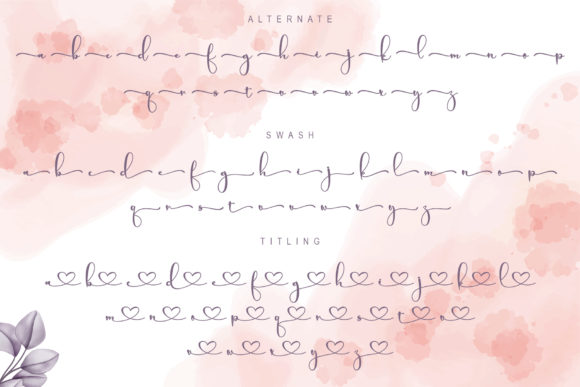 ALTERNATE
a b c d e f g h i j k l m n o p
q r s t u v w x y z
SWASH
a b c d e f g h i j k l m n o p
q r s t u v w x y z
TITLING
a b c d e f g h i j k l
m n o p q r s t u
v w x y z